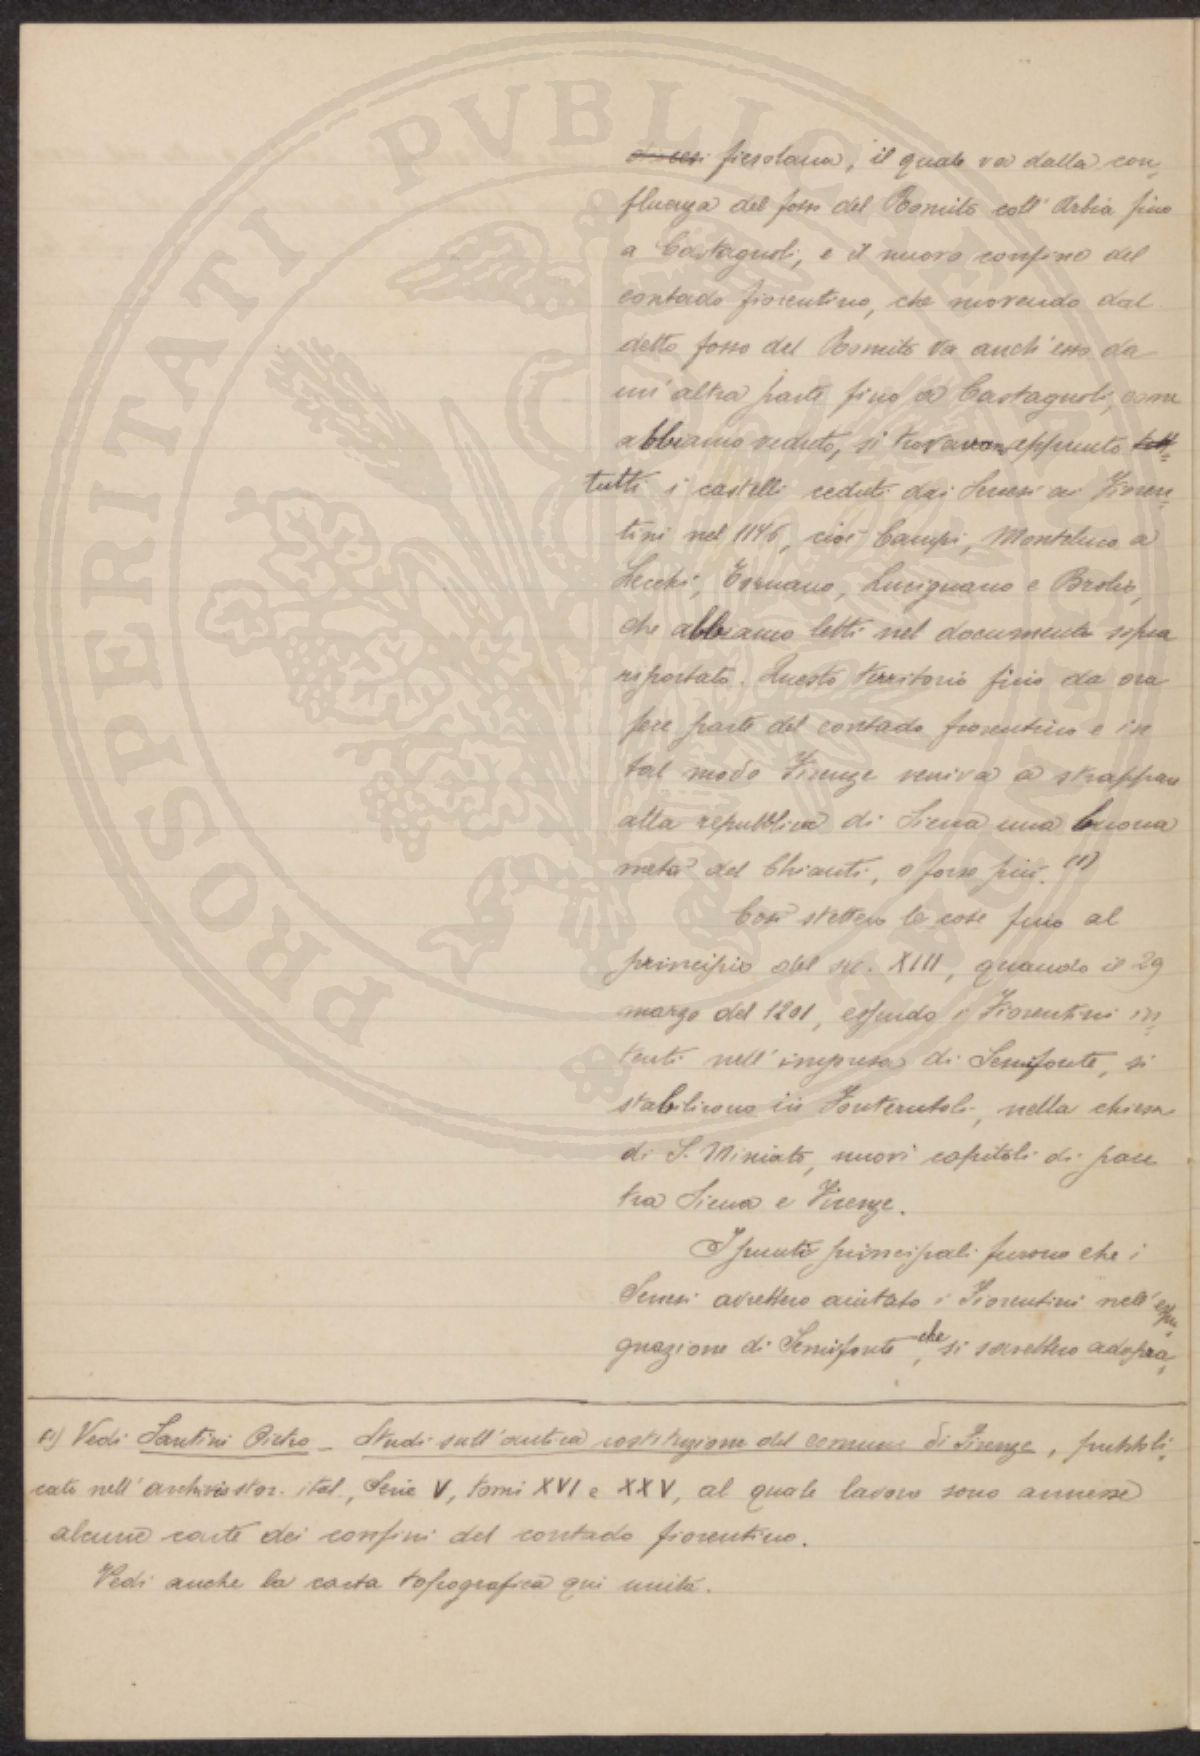 diocesi fiesolana, il quale va dalla con-
fluenza del fosso del Romito coll' Arbia fino
a Castagnoli, e il nuovo confine del
contado fiorentino, che movendo dal
detto fosso del Romito va anch' esso da
un' altra parte fino a Castagnoli, come
abbiamo veduto, si trovavano appunto tutt-
tutti i castelli ceduti dai Senesi ai Fioren-
tini nel 1176, cioè Campi, Monteluco a
Lecchi, Tornano, Lucignano e Brolio,
che abbiamo letti nel documento sopra
riportato. Questo territorio fino da ora
fece parte del contado fiorentino e in
tal modo Firenze veniva a strappare
alla repubblica di Siena una buona
metà del Chianti, o forse più. (1)
Così stettero le cose fino al
principio del sec. XIII, quando il 29
marzo del 1201, essendo i Fiorentini in-
tenti nell' impresa di Semifonte, si
stabilirono in Fonterutoli, nella chiesa
di S. Miniato, nuovi capitoli di pace
tra Siena e Firenze.
I punti principali furono che i
Senesi avrebbero aiutato i Fiorentini nell' espu-
gnazione di Semifonte, che si sarebbero adopra-
(1) Vedi Santini Pietro - Studi sull' antica costituzione del comune di Firenze, pubbli-
cato nell' archivio stor. ital., Serie V, tomi XVI e XXV, al quale lavoro sono annesse
alcune carte dei confini del contado fiorentino.
Vedi anche la carta topografica qui unita.
PROSPERITATI PVBLICAE